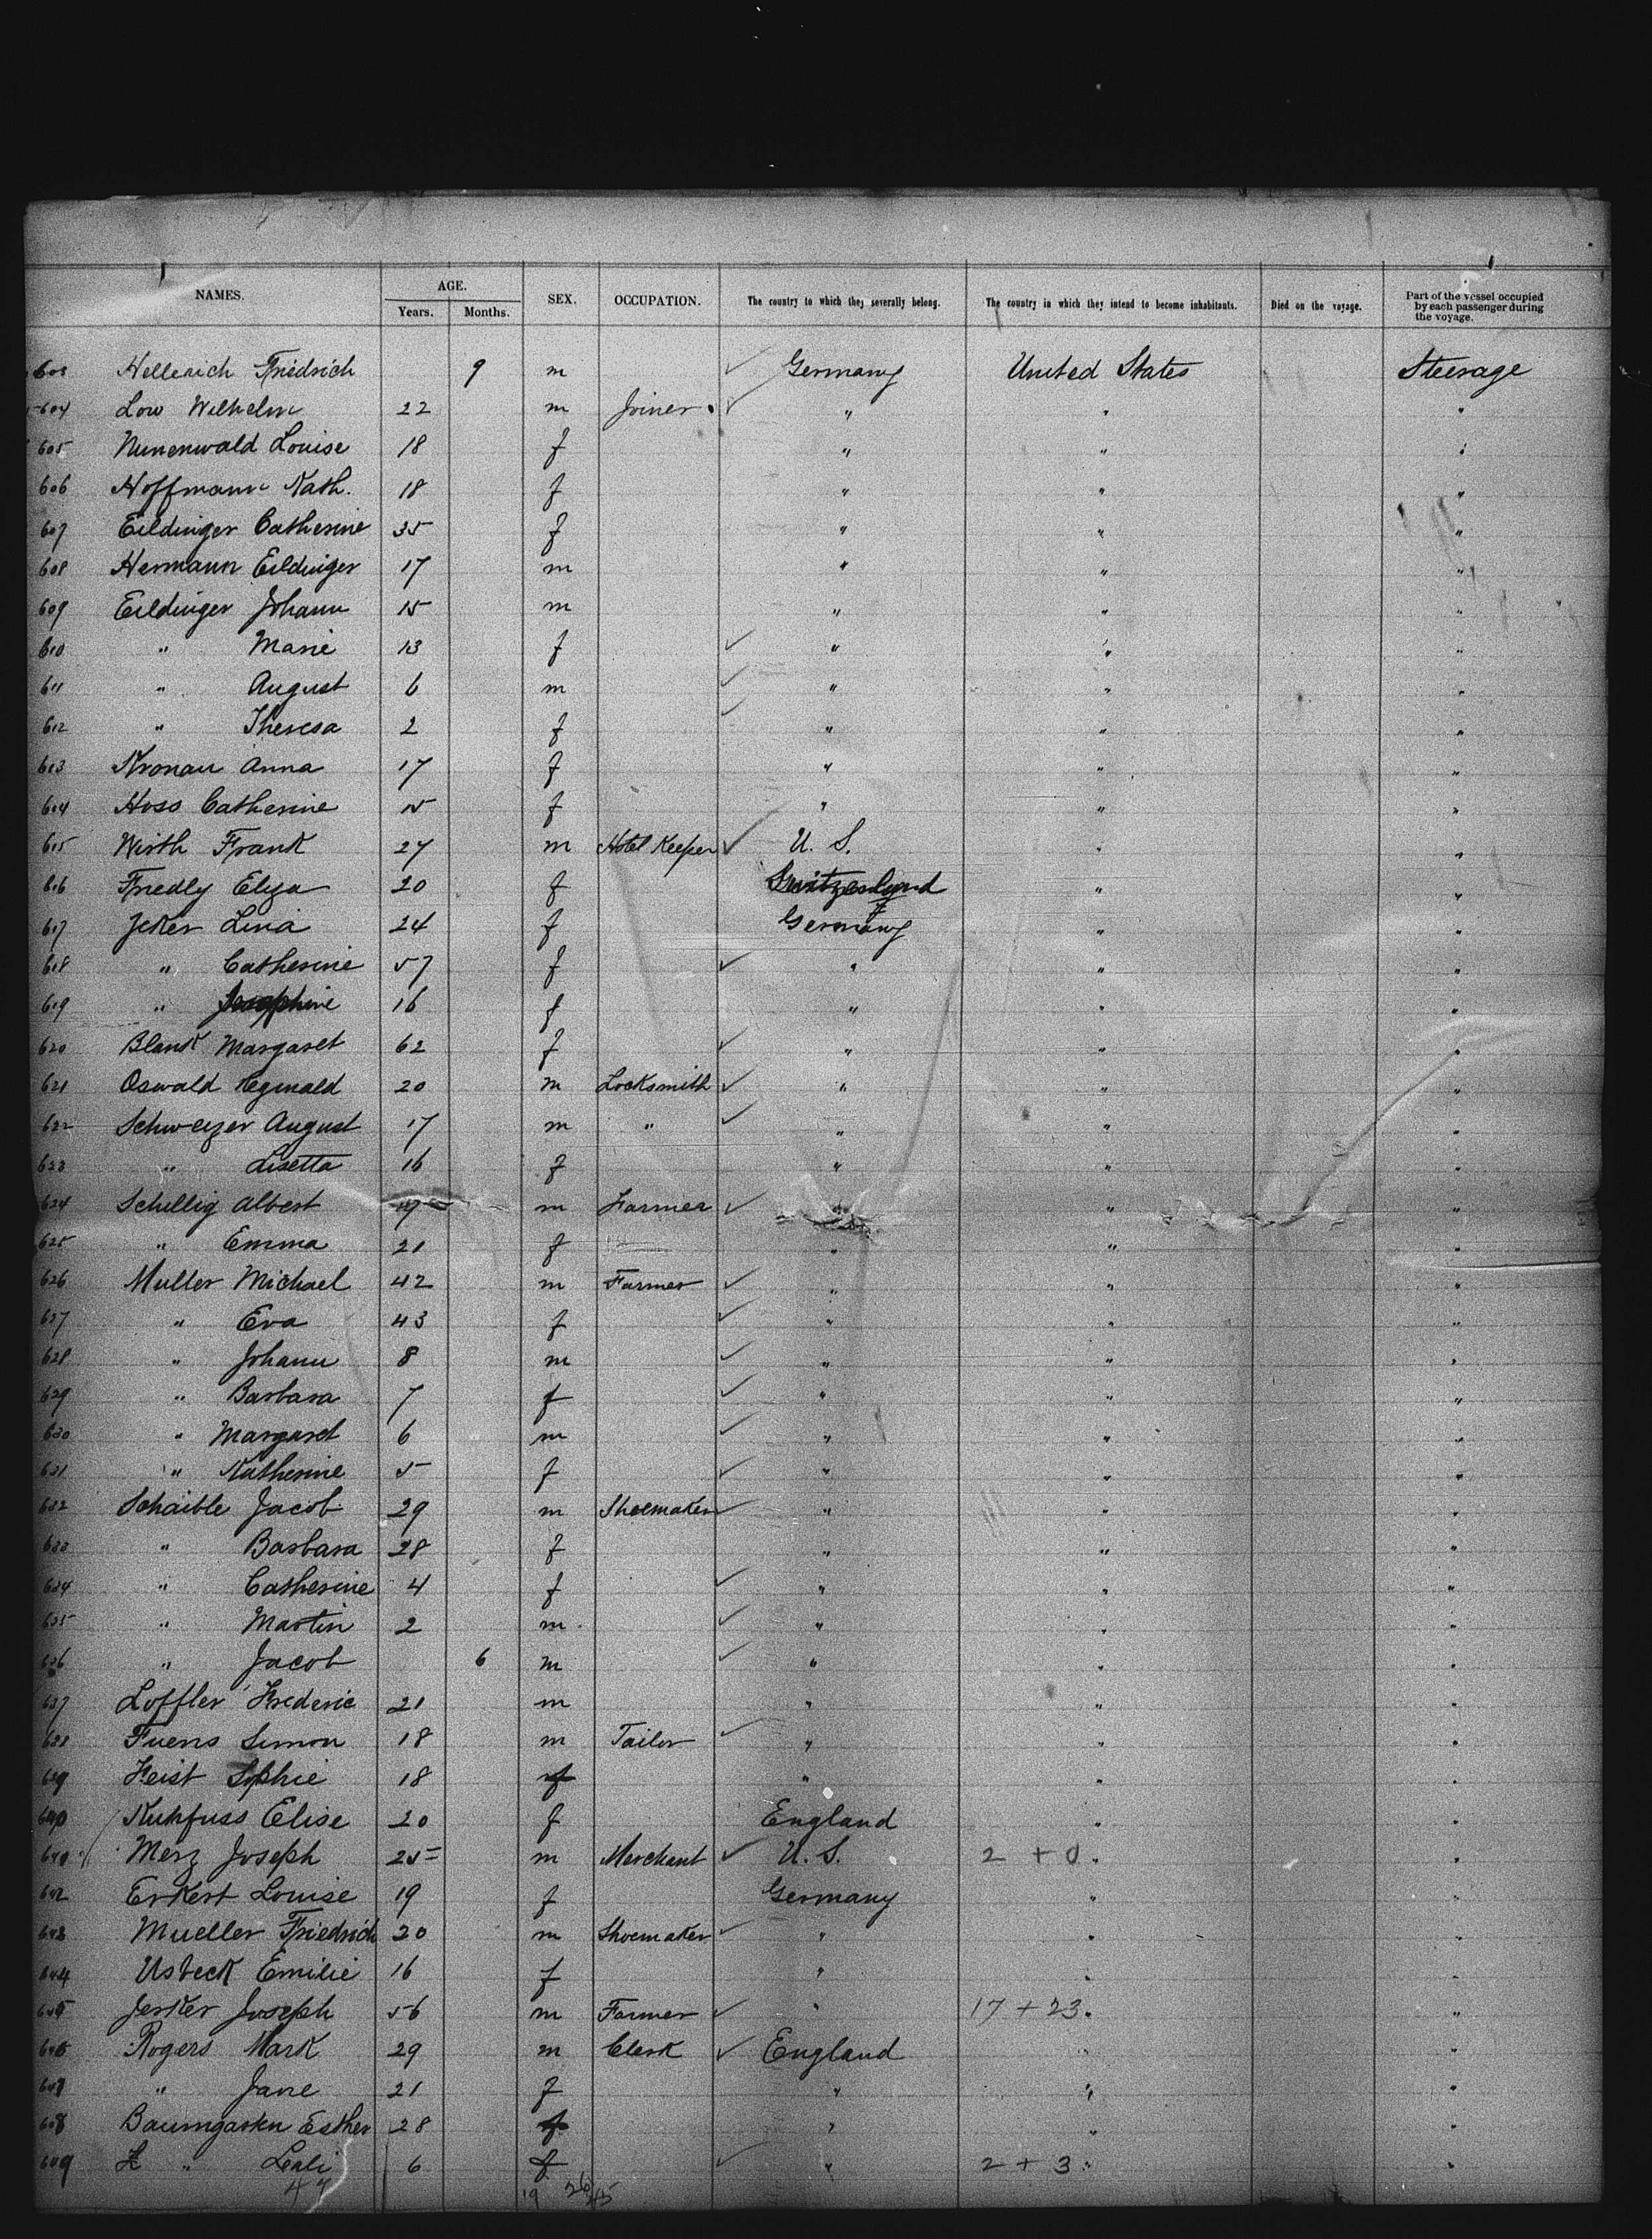 NAMES. AGE. SEX. OCCUPATION. The country to which they severally belong. The country in which they intend to become inhabitants. Died on the voyage. Part of the vessel occupied by each passenger during the voyage.
Years. Months.
603 Hellerich Friedrich 9 m Germany United States Steerage
604 Low Wilhelm 22 m Joiner " " "
605 Nunenwald Louise 18 f " " "
606 Hoffmann Kath. 18 f " " "
607 Eildinger Catherine 35 f " " "
608 Hermann Eildinger 17 m " " "
609 Eildinger Johann 15 m " " "
610 " Marie 13 f " " "
611 " August 6 m " " "
612 " Theresa 2 f " " "
613 Kronau Anna 17 f " " "
614 Hoss Catherine 15 f " " "
615 Wirth Frank 27 m Hotel Keeper U. S. " "
616 Friedly Eliza 20 f Switzerland " "
617 Jeker Lina 24 f Germany " "
618 " Catherine 57 f " " "
619 " Josephine 16 f " " "
620 Blank Margaret 62 f " " "
621 Oswald Reginald 20 m Locksmith " " "
622 Schweizer August 17 m " " " "
623 " Lisetta 16 f " " "
624 Schillig Albert m Farmer " " "
625 " Emma 21 f " " "
626 Muller Michael 42 m Farmer " " "
627 " Eva 43 f " " "
628 " Johann 8 m " " "
629 " Barbara 7 f " " "
630 " Margaret 6 m " " "
631 " Katherine 5 f " " "
632 Schaible Jacob 29 m Shoemaker " " "
633 " Barbara 28 f " " "
634 " Catherine 4 f " " "
635 " Martin 2 m " " "
636 " Jacob 6 m " " "
637 Loffler Frederic 21 m " " "
638 Fuens Simon 18 m Tailor " " "
639 Feist Sophie 18 f " " "
640 Kuhfuss Elise 20 f England " "
641 Merz Joseph 25 m Merchant U. S. 2 + 0 " "
642 Erkert Louise 19 f Germany " "
643 Mueller Friedrich 20 m Shoemaker " " "
644 Usbeck Emilie 16 f " " "
645 Jerker Joseph 56 m Farmer " 17 + 23 " "
646 Rogers Mark 29 m Clerk England " "
647 " Jane 21 f " " "
648 Baumgarten Esther 28 f " " "
649 " Leali 6 f " 2 + 3 " "
47 19 26 45